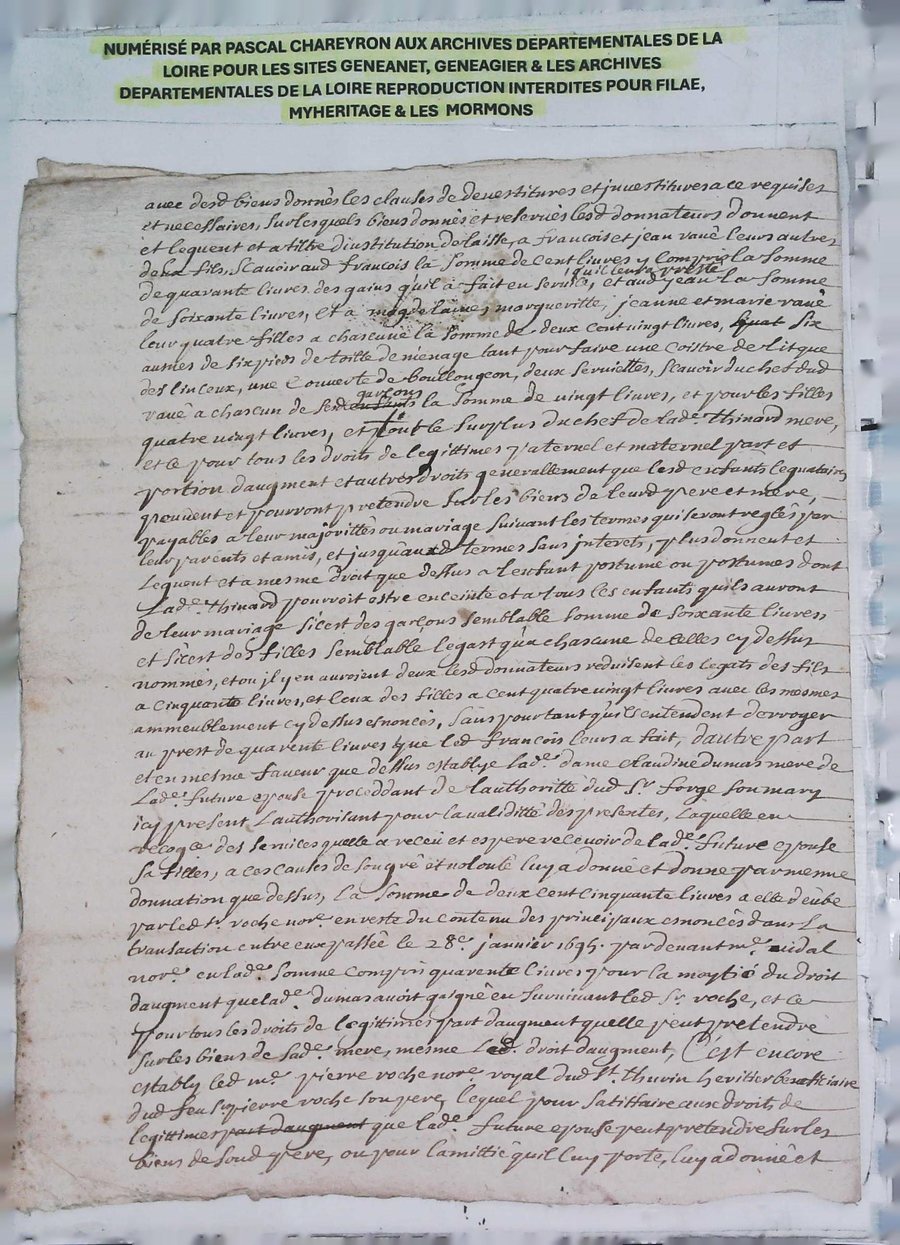 NUMÉRISÉ PAR PASCAL CHAREYRON AUX ARCHIVES DEPARTEMENTALES DE LA
LOIRE POUR LES SITES GENEANET, GENEAGIER & LES ARCHIVES
DEPARTEMENTALES DE LA LOIRE REPRODUCTION INTERDITES POUR FILAE,
MYHERITAGE & LES MORMONS
avec desd biens donnés les clauses de devestitures et investitures a ce requises
et necessaires, sur lesquels biens donnés et reservés lesd donnateurs donnent
et leguent et a tiltre d'institution delaisse, a francois et jean vauê leurs autres
deux fils, scavoir aud francois la somme de cent livres y compris la somme
de quarante livres des gains qu'il a fait en service, qu'il leur a presté et aud jean la somme
de soixante livres, et a magdelaine, margueritte, jeanne et marie vauê
leur quatre filles a chascune la somme de deux cent vingt livres, six
aunes de six pieds de toille de menage tant pour faire une coistre de lit que
des linceux, une couverte de boullongeon, deux serviettes, scavoir du chef dud
vauê a chascun de sesd garçons la somme de vingt livres, et pour les filles
quatre vingt livres, et tout le surplus du chef de lade. Thinard mere,
et ce pour tous les droits de legittimes paternel et maternel part et
portion d'augment et autres droits generallement que lesd enfants legataires
peuvent et pourront pretendre sur les biens de leurd pere et mere,
payables a leur majorittés ou mariage suivant les termes qui seront reglés par
leur parents et amis, et jusqu'auxd termes sans interets, plus donnent et
leguent et a mesme droit que dessus a l'enfant postume ou postumes dont
lade. Thinard pourroit estre enceinte et a tous les enfants qu'ils auront
de leur mariage si c'est des garçons semblable somme de soixante livres,
et si c'est des filles semblable legat qu'a chascune de celles cy dessus
nommés, et ou il y en auroient deux lesd donnateurs reduisent les legats des fils
a cinquante livres, et ceux des filles a cent quatre vingt livres avec les mesmes
ammeublement cy dessus esnoncés, sans pourtant qu'ils entendent derroger
au prest de quarente livres que led francois leurs a fait, d'autre part
et en mesme faveur que dessus establye lade. dame claudine dumas mere de
lade. future epouse proceddant de l'authoritté dud Sr. forge son mary
icy present l'authorisant pour la validitté des presentes, laquelle en
des services quelle a receu et espere recevoir de lade. future epouse
sa filles, a ces causes de son gré et volonté luy a donné et donne par mesme
donnation que dessus, la somme de deux cent cinquante livres a elle dëube
par led sr. roche nore. en reste du contenu des principaux esnoncés dans la
transaction entre eux passée le 28e. janvier 1695. par devant me. vidal
nore. en lade. somme compris quarente livres pour la moytié du droit
d'augment que lade. dumas avoit gaigné en survivant led Sr. roche, et ce
pour tous les droits de legittimes part d'augment quelle peut pretendre
sur les biens de sade. mere, mesme led. droit d'augment, C'est encore
estably led me. pierre roche nore. royal dud St. thurin heritier beneficiaire
dud feu Sr pierre roche son pere, lequel pour satiffaire aux droits de
legittimes part d'augment que lade. future epouse peut pretendre sur les
biens de soud pere, ou pour l'amittié qu'il luy porte, luy a donné et